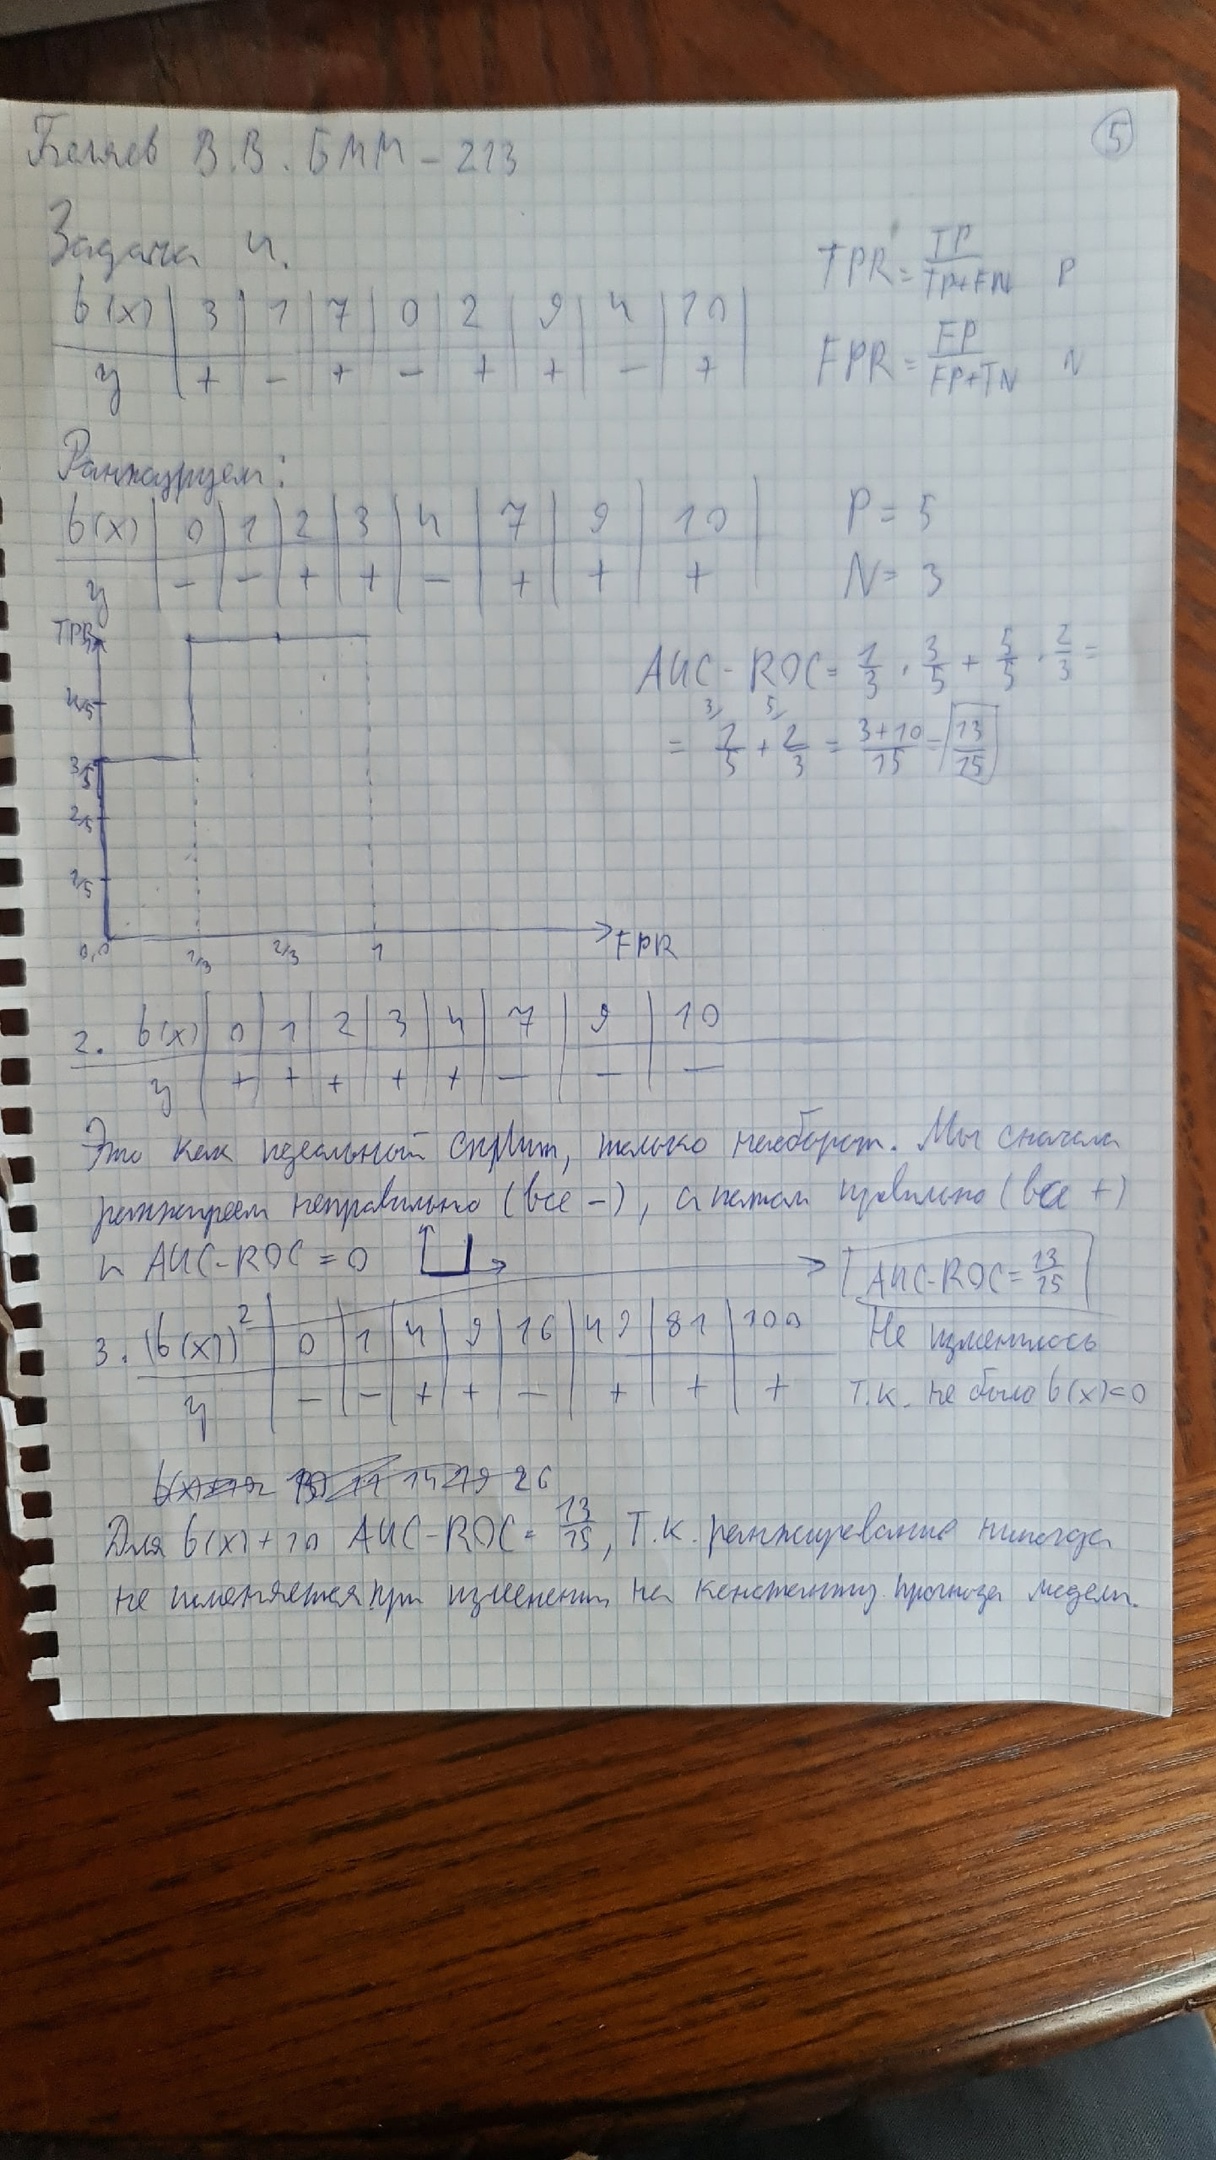 Беляев В.В. БММ-213
5
Задача 4.
b(x) 3 1 7 0 2 9 4 10
y + - + - + + - +
TPR = TP/(TP+FN) P
FPR = FP/(FP+TN) N
Ранжируем:
b(x) 0 1 2 3 4 7 9 10
y - - + + - + + +
P = 5
N = 3
TPR
1
4/5
3/5
2/5
1/5
0,0 1/3 2/3 1 FPR
AUC-ROC = 1/3 · 3/5 + 5/5 · 2/3 =
= 1/5 + 2/3 = (3+10)/15 = 13/15
2. b(x) 0 1 2 3 4 7 9 10
y + + + + + - - -
Это как идеальный сплит, только наоборот. Мы сначала
ранжируем неправильно (все -), а потом правильно (все +)
и AUC-ROC = 0
3. (b(x))² 0 1 4 9 16 49 81 100
y - - + + - + + +
AUC-ROC = 13/15
Не изменилось
т.к. не было b(x)<0
26
Для b(x)+10 AUC-ROC = 13/15, т.к. ранжирование никогда
не изменяется при изменении на константу прогноза модели.